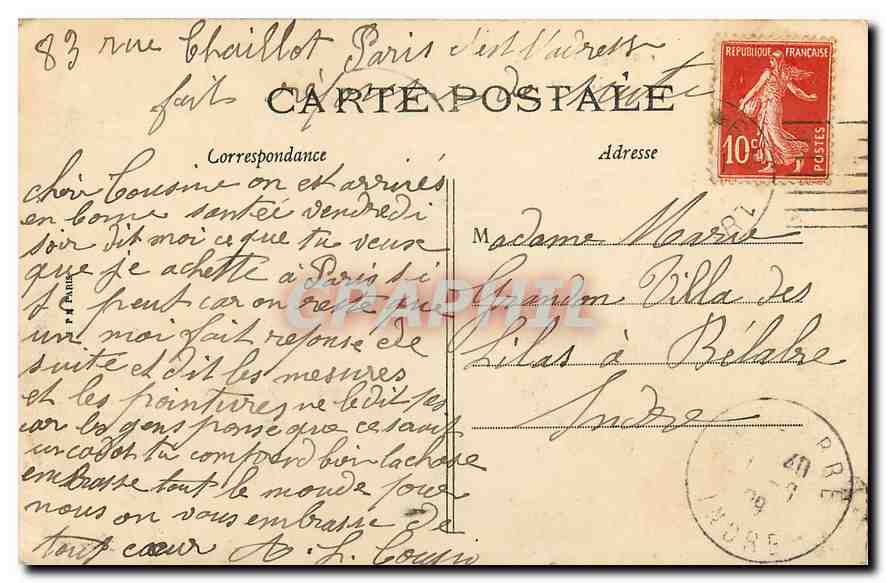 83 rue Chaillot Paris c'est l'adress
fait réponse de suite
CARTE POSTALE
Correspondance
Adresse
RÉPUBLIQUE FRANÇAISE
10c
POSTES
chère Cousine on est arrivés
en bonne santée vendredi
soir dit moi ce que tu veuse
que je achette à Paris si
je peut car on reste que
un moi fait reponse de
suite et dit les mesures
et les pointures ne le dit pas
car les gens ponse que ce serait
un cadot tu comprend bien la chose
embrasse tout le monde pour
nous on vous embrasse de
tout cœur
Madame Marie
Grandon Villa des
Lilas à Bélabre
Indre
PARIS
CPAPHIL
INDRE
09